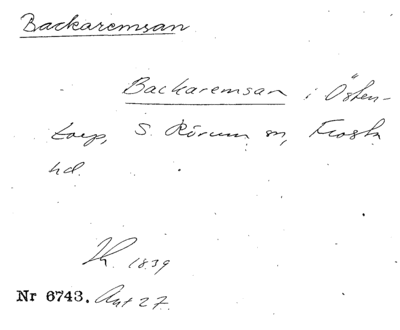 Backaremsan
Backaremsan i Östen-
torp, S. Rörum sn, Frosta
hd.
Th. 1839
Nr 6743. Ant 27.